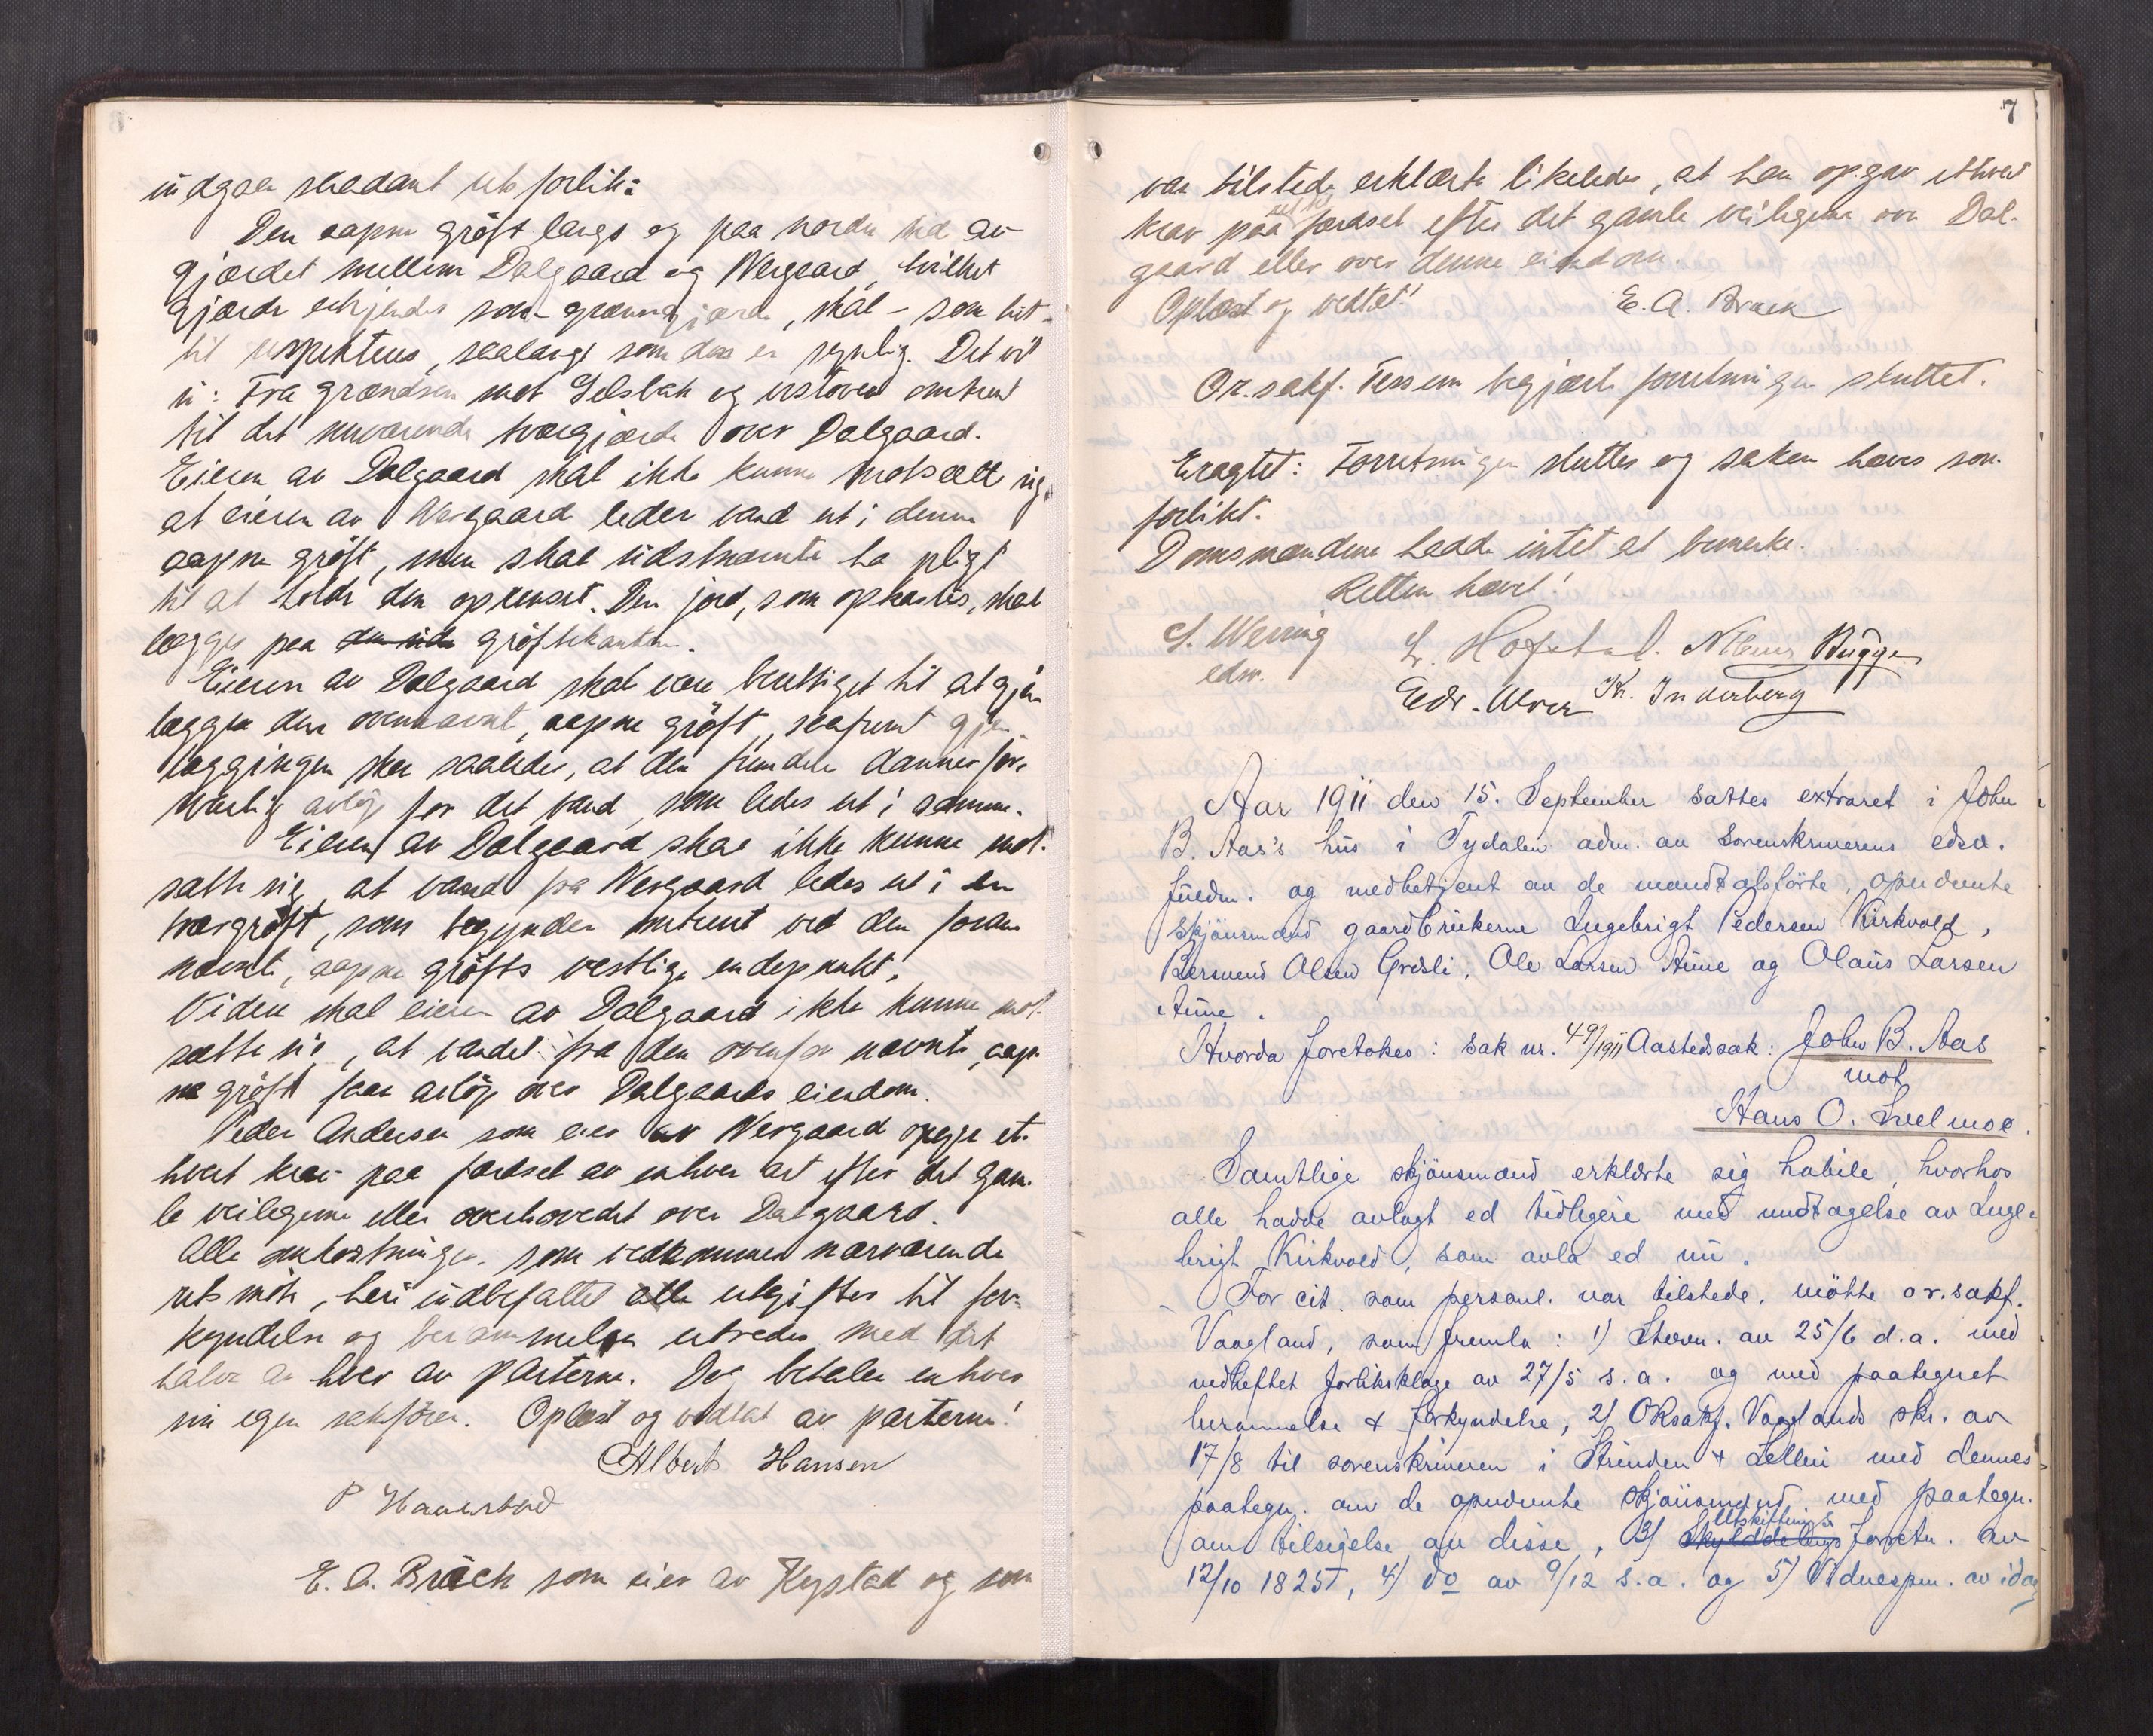 indgaa saadant retsforlik:
Den aapne gröft langs og paa nordre side av
gjærdet mellem Dalgaard og Nergaard, hvilket
gjærde erkjendes som grænsegjærde, skal – som hit-
til respekteres, saalangt som den er synlig. Det vil
si: Fra grændsen mot Selsbak og vestover omtrent
til det nuværende tvergjærde over Dalgaard.
Eieren av Dalgaard skal ikke kunne motsætte sig,
at eieren av Nergaard leder vand ut i denne
aapne gröft, men skal sidstnævnte ha pligt
til at holde den oprenset. Den jord, som opkastes, skal
lægges paa den side gröftekanten.
Eieren av Dalgaard skal være berettiget til at gjen
lægge den ovennævnte, aapne gröft, saafremt gjen-
læggingen sker saaledes, at der fremdeles dannes for-
svarlig avlöp for det vand, som ledes ut i samme.
Eieren av Dalgaard skal ikke kunne mot-
sætte sig, at vand fra Nergaard ledes ut i en
tvergröft, som begynder omtrent ved den foran
nævnte, aapne gröfts vestlige endepunkt.
Videre skal eieren av Dalgaard ikke kunne mot-
sætte sig, at vandet fra den ovenfor nævnte, aap-
ne gröft faar avlöp over Dalgaards eiendom.
Peder Andersen som eier av Nergaard opgir et-
hvert krav paa færdsel av enhver art efter det gam-
le veilegeme eller overhovedet over Dalgaard.
Alle omkostninger, som vedkommer nærværende
retsmöte, heri indbefattet alle utgifter til for-
kyndelse og berammelse utredes med det
halve av hver av parterne. Dog betaler enhver
sin egen sakförer. Oplæst og vedtat av parterne!
Albert Hansen
P Hammerstad
E. A. Bräck som eier av Kystad og som
7
var tilstede erklærte likeledes, at han opgav ethvert
krav paa færdsel efter det gamle veilegeme over Dal-
gaard eller over denne eiendom.
Oplæst og vedtat! E. A. Bräck
Or.sakf. Tessem begjærte forretningen sluttet.
Eragtet: Forretningen sluttes og saken hæves som
forlikt.
Domsmændene hadde intet at bemerke.
Retten hævet!
S. Werring
edsv.
L. Hofstad. N Claus Bugge
Edv. Ulver K. Inderberg
Aar 1911 den 15. September sattes extraret i John
B. Aas's hus i Tydalen adm. av sorenskriverens edsv.
fuldm. og medbetjent av de mandtalsförte, opnævnte
skjönsmænd gaardbrukerne Ingebrigt Pedersen Kirkvold,
Bersvend Olsen Græsli, Ole Larsen Aune og Olaus Larsen
Aune.
Hvorda foretokes: Sak nr. 49/1911 Aastedssak: John B. Aas
mot
Hans O. Svelmoe.
Samtlige skjönsmænd erklærte sig habile, hvorhos
alle hadde avlagt ed tidligere med undtagelse av Inge-
brigt Kirkvold, som avla ed nu.
For cit. som personl. var tilstede, mötte o.r.sakf.
Vaagland, som fremla: 1) Stevn. av 25/6 d.a. med
vedheftet forliksklage av 27/5 s.a. og med paategnet
berammelse & forkyndelse, 2) ORsakf. Vaaglands skr. av
17/8 til sorenskriveren i Strinden & Selbu med dennes
paategn. om de opnævnte skjönsmænd med paategn.
om tilsigelse av disse, 3) Skylddelings Utskiftnings forretn. av
12/10 1825, 4) do av 9/12 s.a. og 5) Vidnespm. av idag